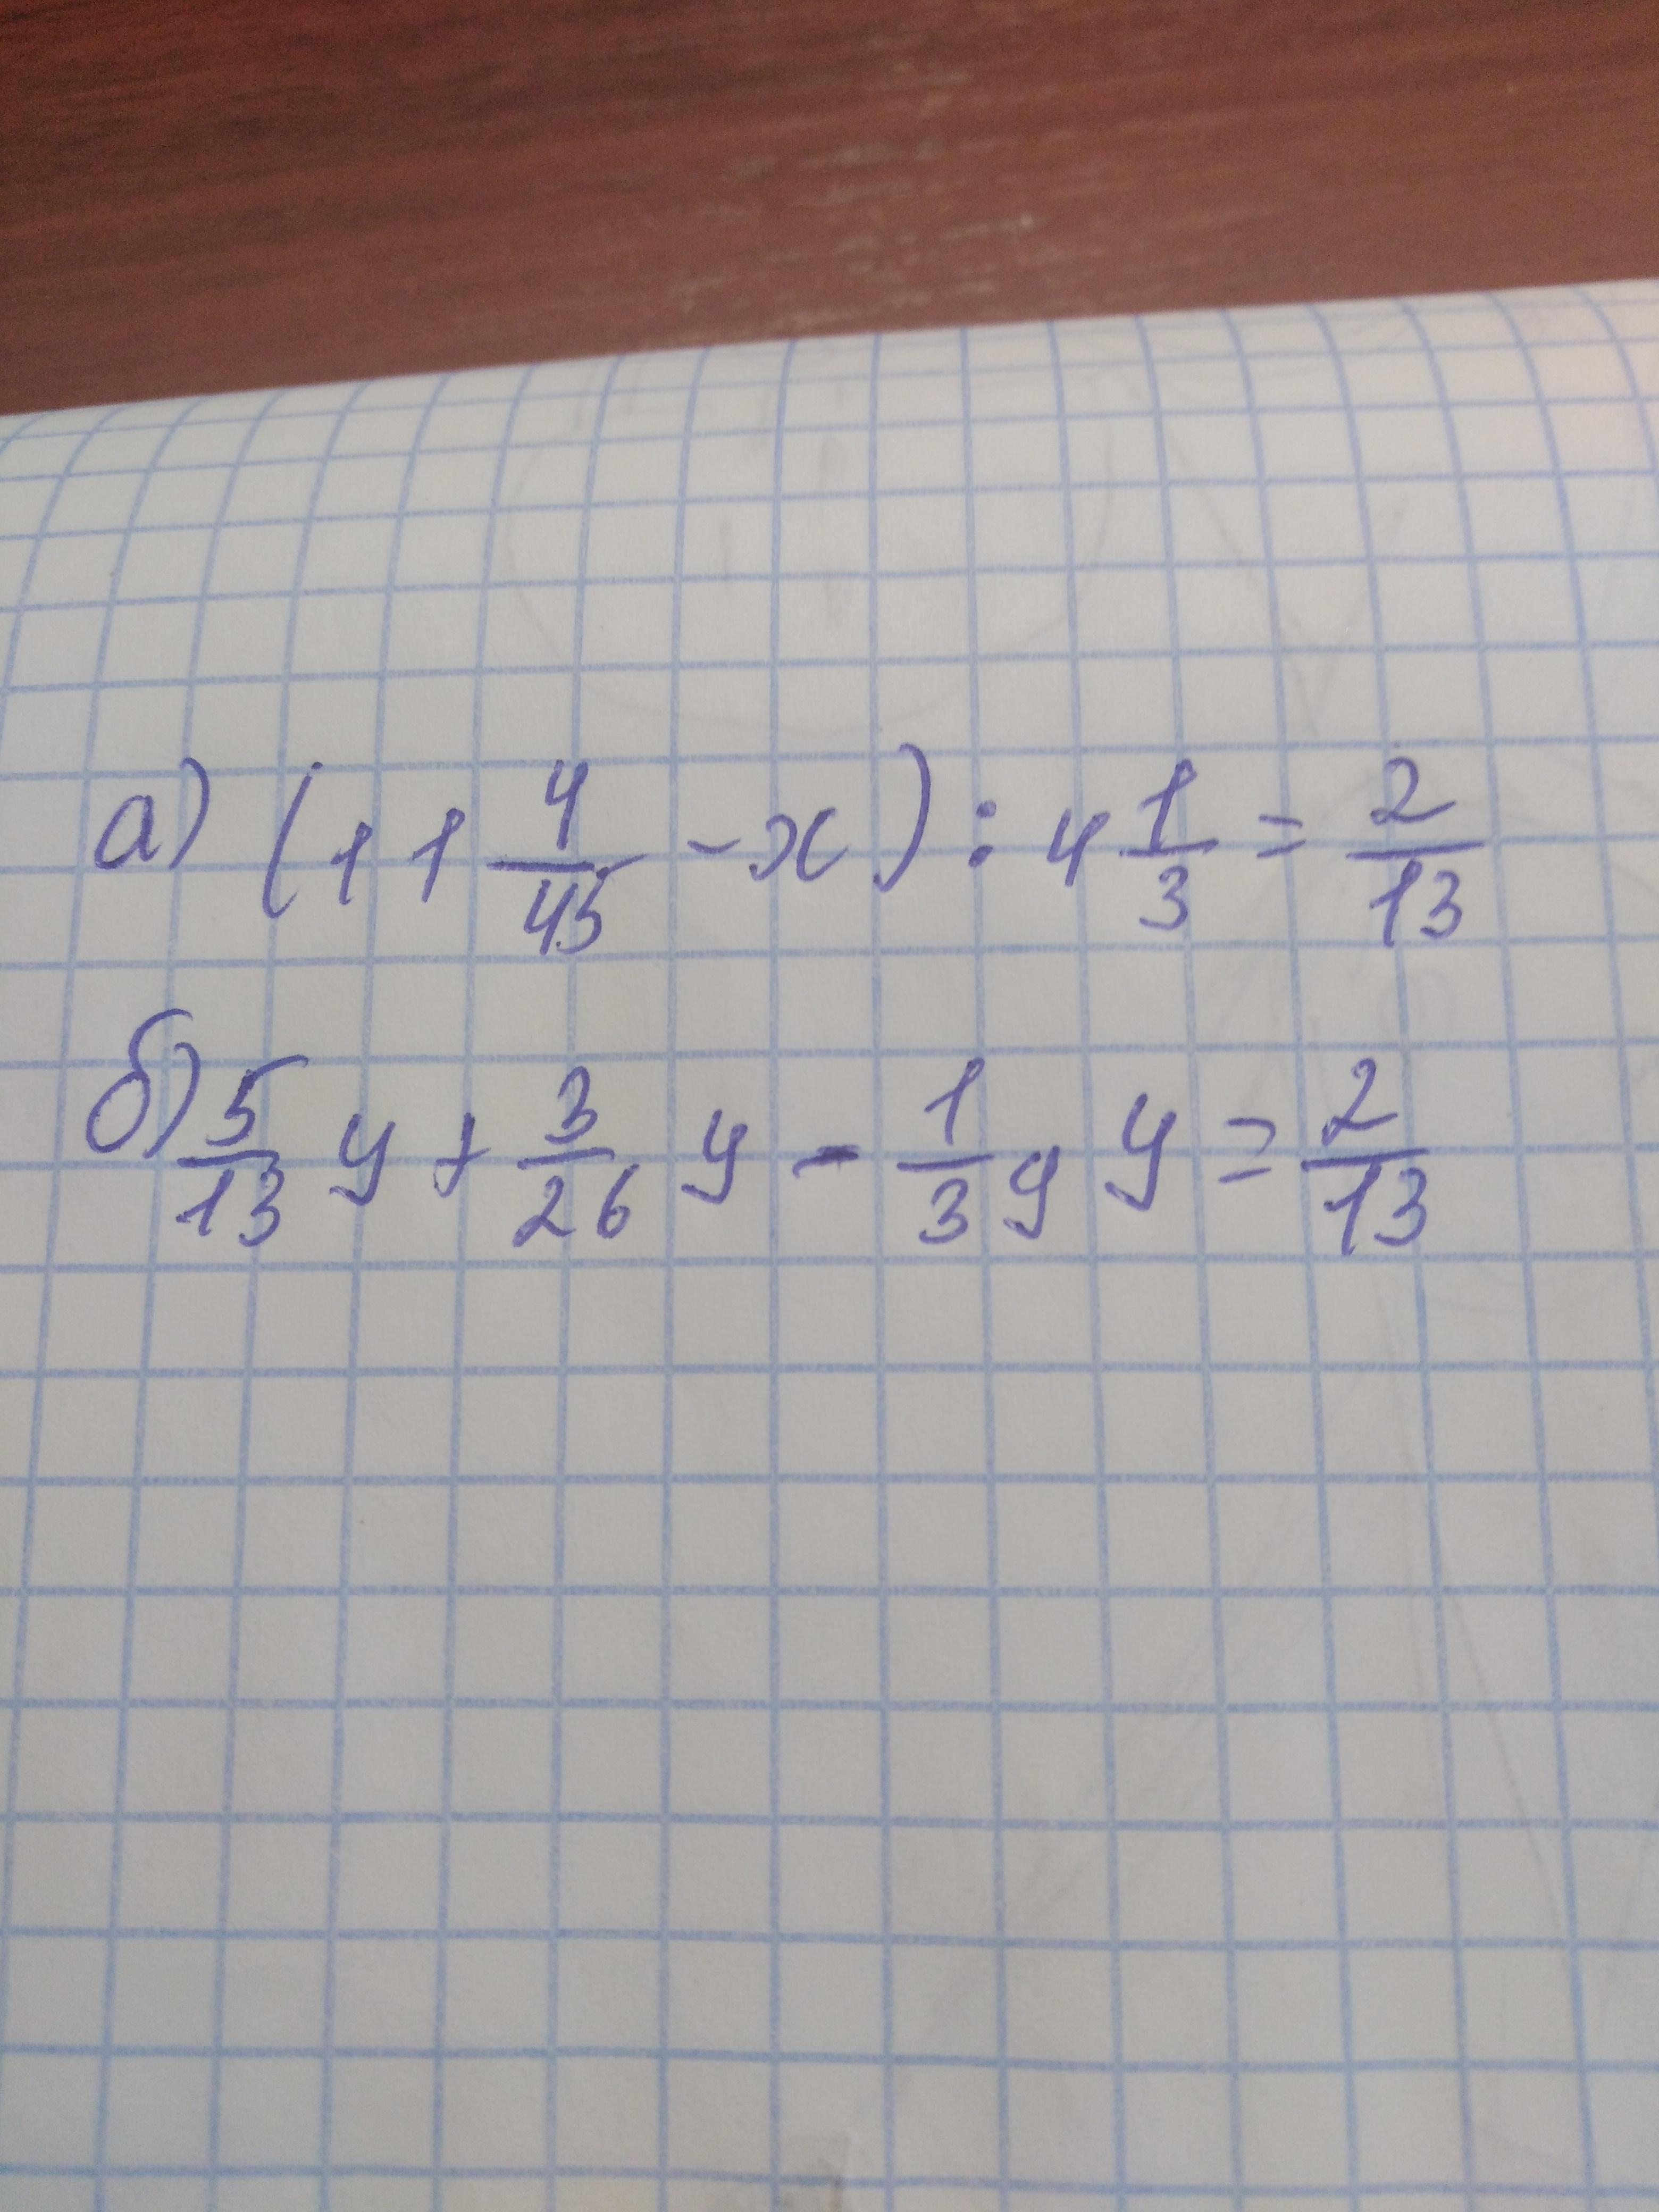 а) (11 4/45 - x) : 4 1/3 = 2/13
б) 5/13 y + 3/26 y - 1/39 y = 2/13